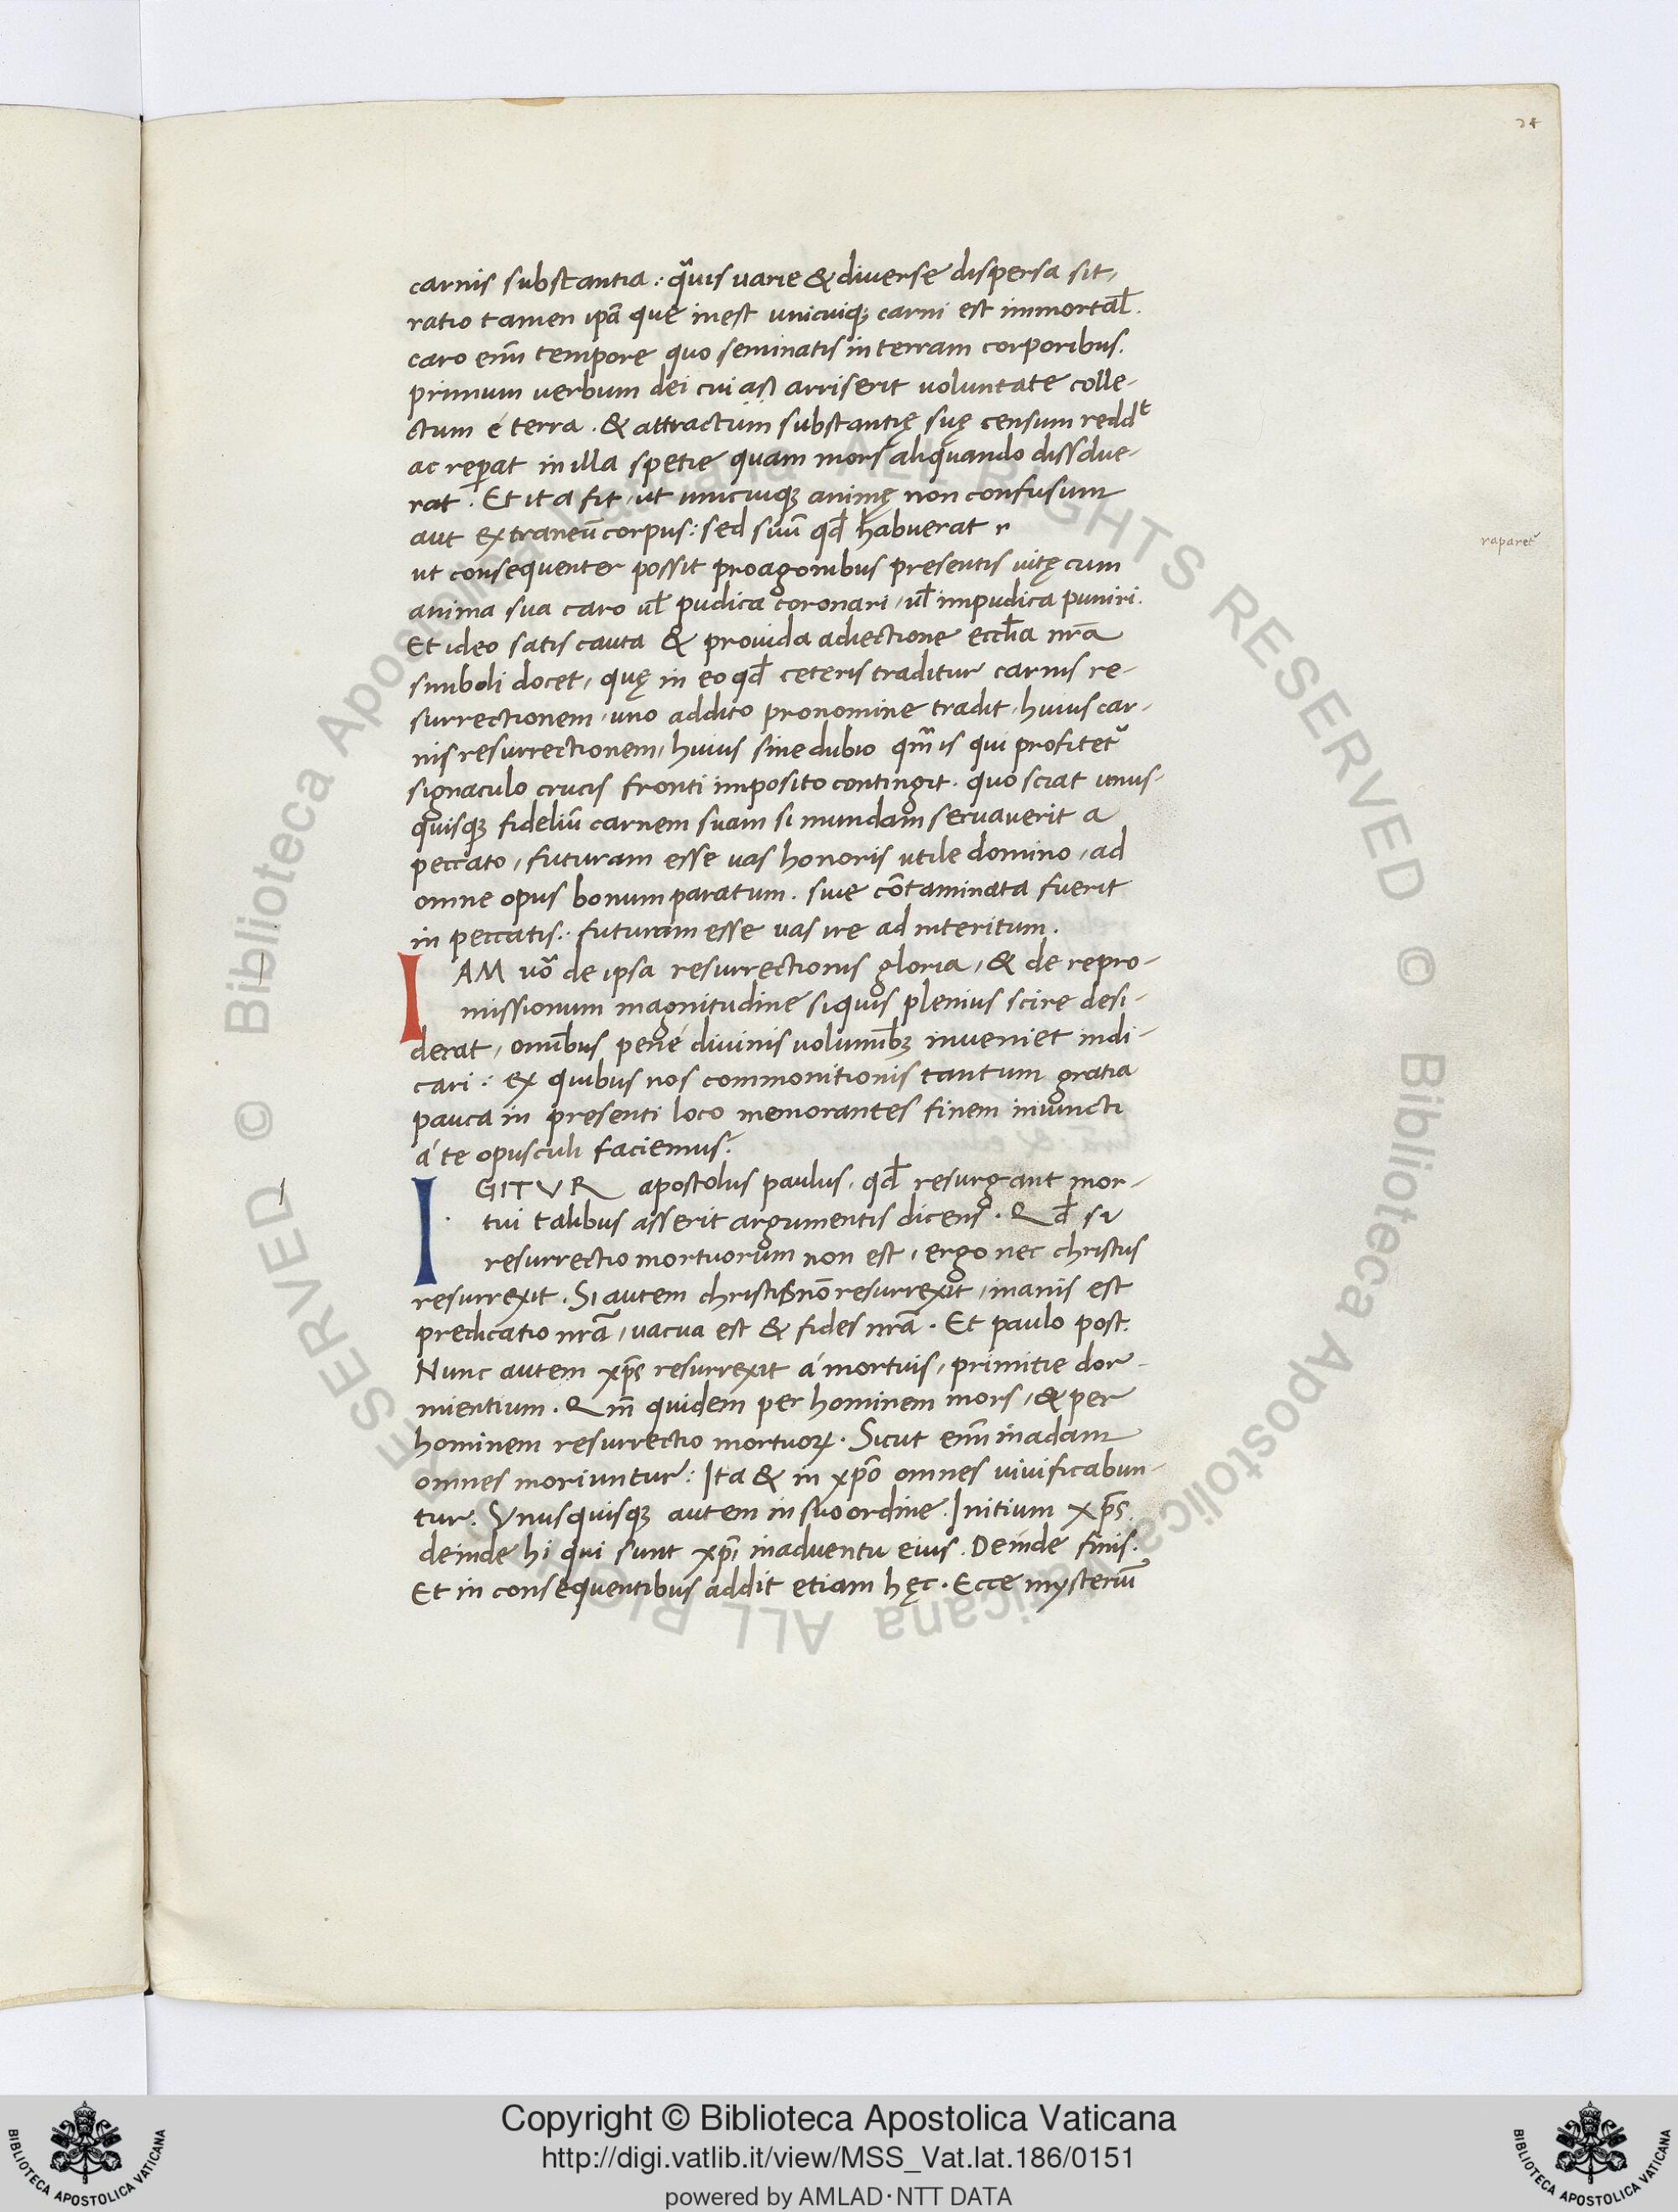 24
carnis substantia : qͣuis uarie & diuerse dispersa sit,
ratio tamen ip̄a que inest unicuiq; carni est immortal̄.
caro eni̅ tempore quo seminatis in terram corporibus.
primum verbum dei cui arriserit voluntate colle-
ctum é terra . & attractum substantię suę censum reddᵗ
ac reꝑat in illa spetie quam mors aliquando dissolue-
rat . Et ita fit, ut unicuiq; animę non confusum
aut extraneū corpus : sed suū qd̄ habuerat r
raparet᷑
ut consequenter possit pro agonibus presentis uitę cum
anima sua caro ul̄ pudica coronari, ul̄ impudica puniri.
Et ideo satis cauta & prouida adiectione eccl̄ia nr̄a
simboli docet, quę in eo qd̄ ceteris traditur carnis re-
surrectionem, uno addito pronomine tradit, huius car-
nis resurrectionem, huius sine dubio qm̄ is qui profitet᷑
signaculo crucis fronti imposito contingit. quo sciat unus-
quisq; fideliū carnem suam si mundam seruauerit a
peccato, futuram esse uas honoris utile domino, ad
omne opus bonum paratum. siue cōtaminata fuerit
in peccatis : futuram esse uas ire ad interitum.
IAM uo̅ de ipsa resurrectionis gloria, & de repro-
missionum magnitudine siquis plenius scire desi-
derat, omībus pené diuinis uolumīb; inueniet indi-
cari : ex quibus nos commonitionis tantum gratia
pauca in presenti loco memorantes finem iniuncti
á te opusculi faciemus.
IGITVR apostolus paulus, qd̄ resurgant mor-
tui talibus asserit argumentis dicens . Qd̄ si
resurrectio mortuorum non est, ergo nec christus
resurrexit . Si autem christus nō resurrexit, inanis est
predicatio nr̄a, uacua est & fides nr̄a . Et paulo post.
Nunc autem xp̄s resurrexit á mortuis, primitie dor-
mientium . Qm̄ quidem per hominem mors, & per
hominem resurrectio mortuoꝝ . Sicut eni̅ in adam
omnes moriuntur : Ita & in xp̄o omnes uiuificabun-
tur. Vnusquisq; autem in suo ordine. Initium xp̄s.
deinde hi qui sunt xp̄i in aduentu eius . Deinde finis.
Et in consequentibus addit etiam hęc . Ecce mysteriū
© Biblioteca Apostolica Vaticana ALL RIGHTS RESERVED
© Biblioteca Apostolica Vaticana ALL RIGHTS RESERVED
BIBLIOTECA APOSTOLICA VATICANA
Copyright © Biblioteca Apostolica Vaticana
http://digi.vatlib.it/view/MSS_Vat.lat.186/0151
powered by AMLAD·NTT DATA
BIBLIOTECA APOSTOLICA VATICANA